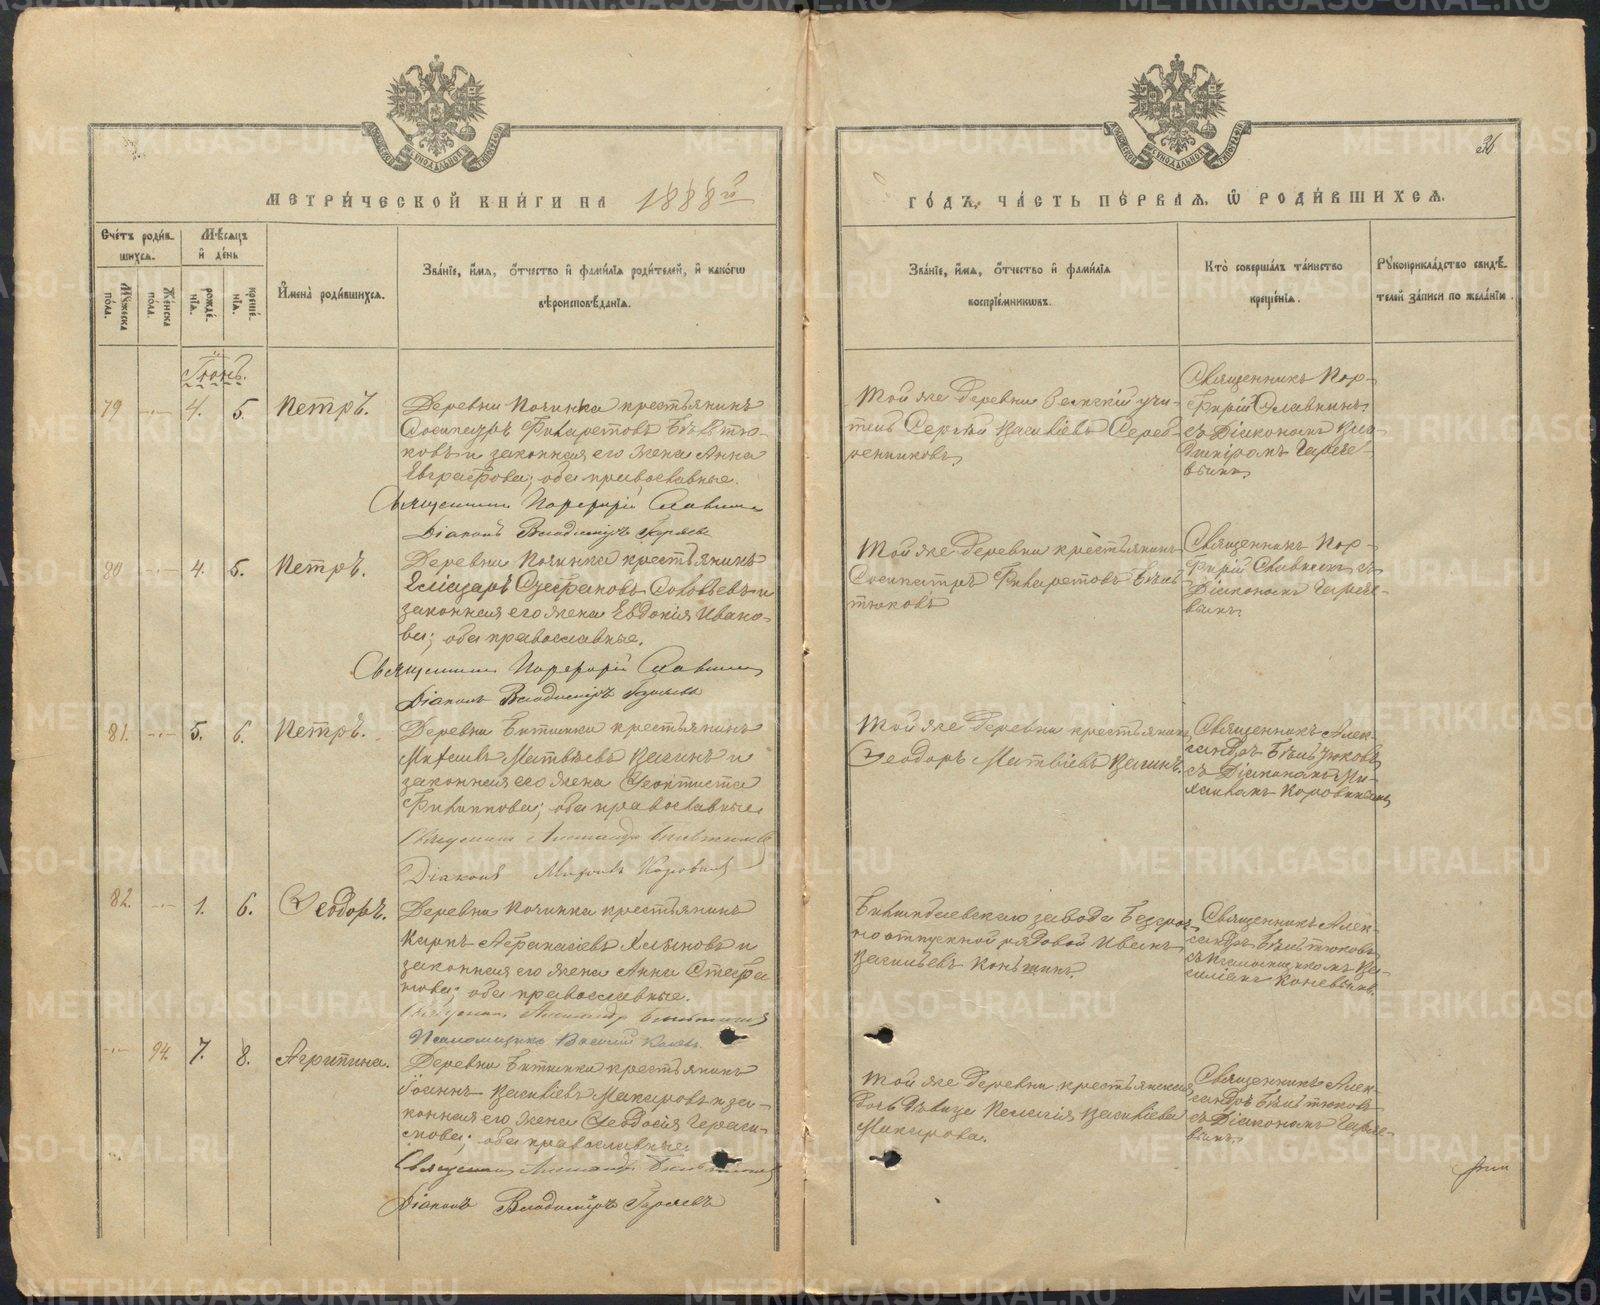 36
МЕТРИ́ЧЕСКОЙ КНИ́ГИ НА 1888й
ГО́ДЪ, ЧА́СТЬ ПЕ́РВАЯ, Ѿ РОДИ́ВШИХСЯ.
Сче́тъ роди́в-
шихся.
Мѣ́сяцъ
и҆ де́нь
Му́жеска
по́ла.
Же́нска
по́ла.
рожде́-
нїя.
креще́-
нїя.
И҆мена̀ роди́вшихся.
Зва́нїе, и҆́мя, о҆́тчество и҆ фами́лїя роди́телей, и҆ како́гѡ
вѣроисповѣ́данїя.
Зва́нїе, и҆́мя, о҆́тчество и҆ фами́лїя
воспрїе́мниковъ.
Кто̀ соверша́лъ та́инство
креще́нїя.
Рꙋкоприкла́дство свидѣ́-
телей за́писи по жела́нїю.
Іюнь.
79 4. 5. Петръ.
Деревни Починка крестьянинъ
Сосипатръ Филаретовъ Бѣльтю-
ковъ и законная его жена Анна
Евграфова; оба православные.
Священникъ Порфирій Славнинъ
Діаконъ Владиміръ Гаряевъ
Той же деревни Земскій учи-
тель Сергѣй Васильевъ Сереб-
ренниковъ
Священникъ Пор-
фирій Славнинъ
съ Діакономъ Вла-
диміромъ Гаряе-
вымъ
80 4. 5. Петръ.
Деревни Починка крестьянинъ
Елиазаръ Стефановъ Соловьевъ и
законная его жена Евдокія Ивано-
ва; оба православные.
Священникъ Порфирій Славнинъ
Діаконъ Владиміръ Гаряевъ
Той же деревни крестьянинъ
Сосипатръ Филаретовъ Бѣль-
тюковъ
Священникъ Пор-
фирій Славнинъ съ
Діакономъ Гаряе-
вымъ.
81. 5. 6. Петръ.
Деревни крестьянинъ
Матвѣевъ Вагинъ и
законная его жена Феоктиста
Филиппова; оба православные.
Священникъ Александръ Бѣльтюковъ
Діаконъ Михаилъ Коровинъ
Той же деревни крестьянинъ
Ѳеодоръ Матвѣевъ Вагинъ.
Священникъ Алек-
сандръ Бѣльтюковъ
съ Діакономъ Ми-
хаиломъ Коровинымъ
82. 1. 6. Ѳеодоръ.
Деревни Починка крестьянинъ
Карпъ Афанасіевъ и
законная его жена Анна Стефа-
нова; оба православные.
Священникъ Александръ Бѣльтюковъ
Псаломщикъ Василій
Билимбаевскаго завода Безсроч-
ноотпускной рядовой Иванъ
Васильевъ
Священникъ Алек-
сандръ Бѣльтюковъ
съ Псаломщикомъ Ва-
силіемъ
94. 7. 8. Агрипина.
Деревни крестьянинъ
Іоаннъ Васильевъ Макаровъ и за-
конная его жена Ѳеодосія Гераси-
мова; оба православные
Священникъ Александръ Бѣльтюковъ
Діаконъ Владиміръ Гаряевъ
Той же деревни крестьянская
дочь дѣвица Пелагія Васильева
Макарова.
Священникъ Алек-
сандръ Бѣльтюковъ
съ Діакономъ Гаряе-
вымъ.
METRIKI.GASO-URAL.RU